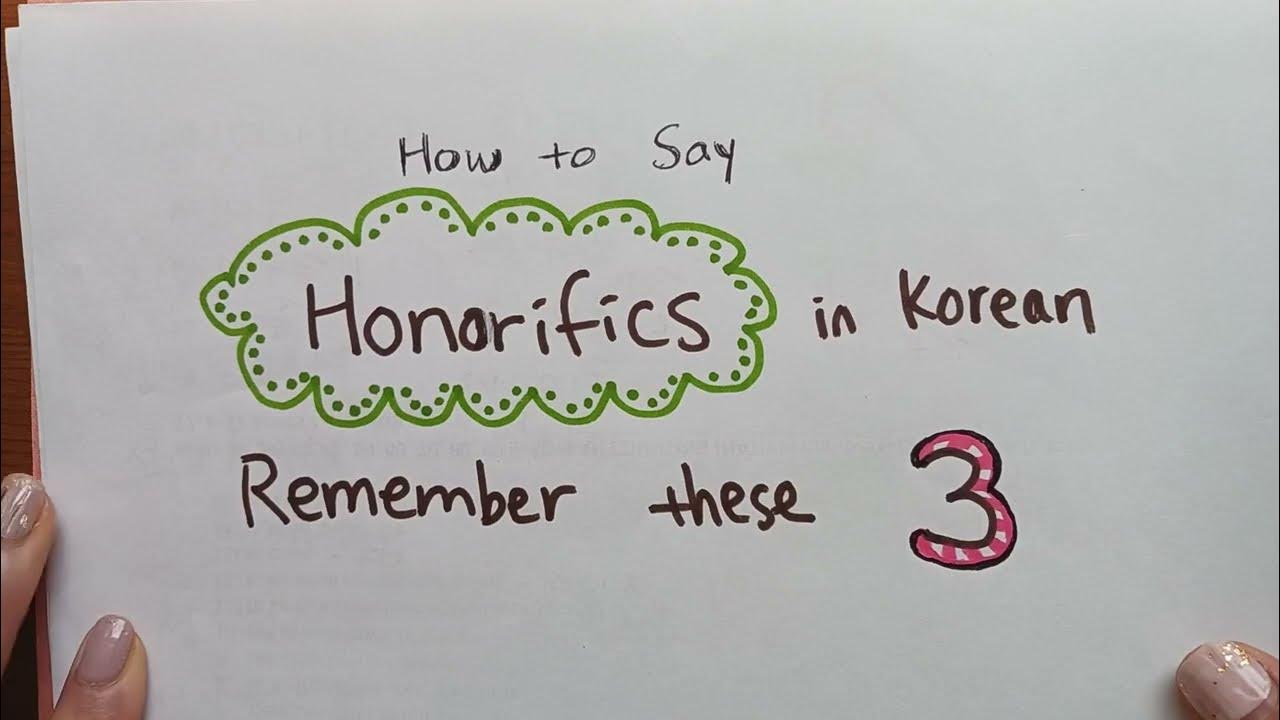 How to Say
Honorifics in Korean
Remember these 3